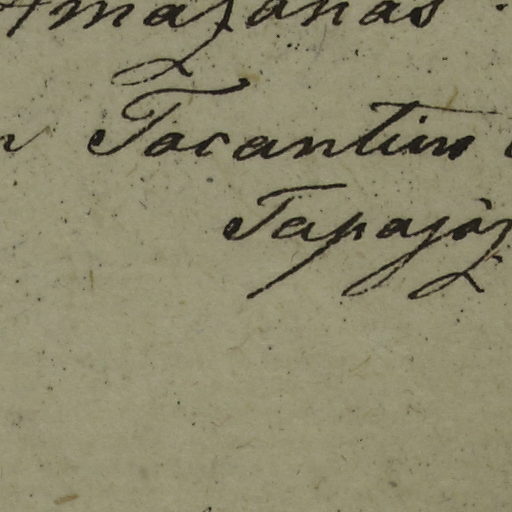 Amazonas
Tocantins
Tapajóz